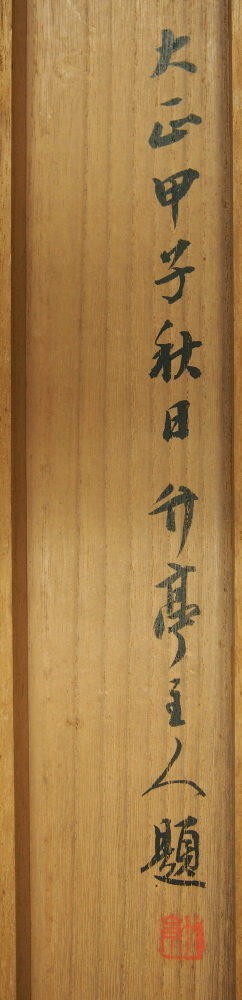 大正甲子秋日竹亭主人題